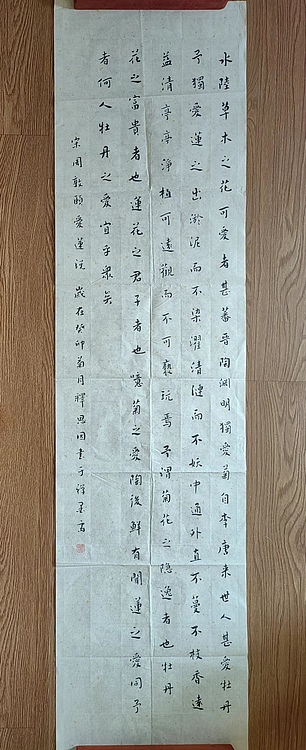 水陸草木之花可愛者甚蕃晉陶淵明獨愛菊自李唐来世人甚愛牡丹
予獨愛蓮之出淤泥而不染濯清漣而不妖中通外直不蔓不枝香遠
益清亭亭淨植可遠觀而不可褻玩焉予謂菊花之隐逸者也牡丹
花之富貴者也蓮花之君子者也噫菊之愛陶後鮮有聞蓮之愛同予
者何人牡丹之愛宜乎衆矣
宋周敦頤愛蓮説 歲在癸卯菊月 思因書于